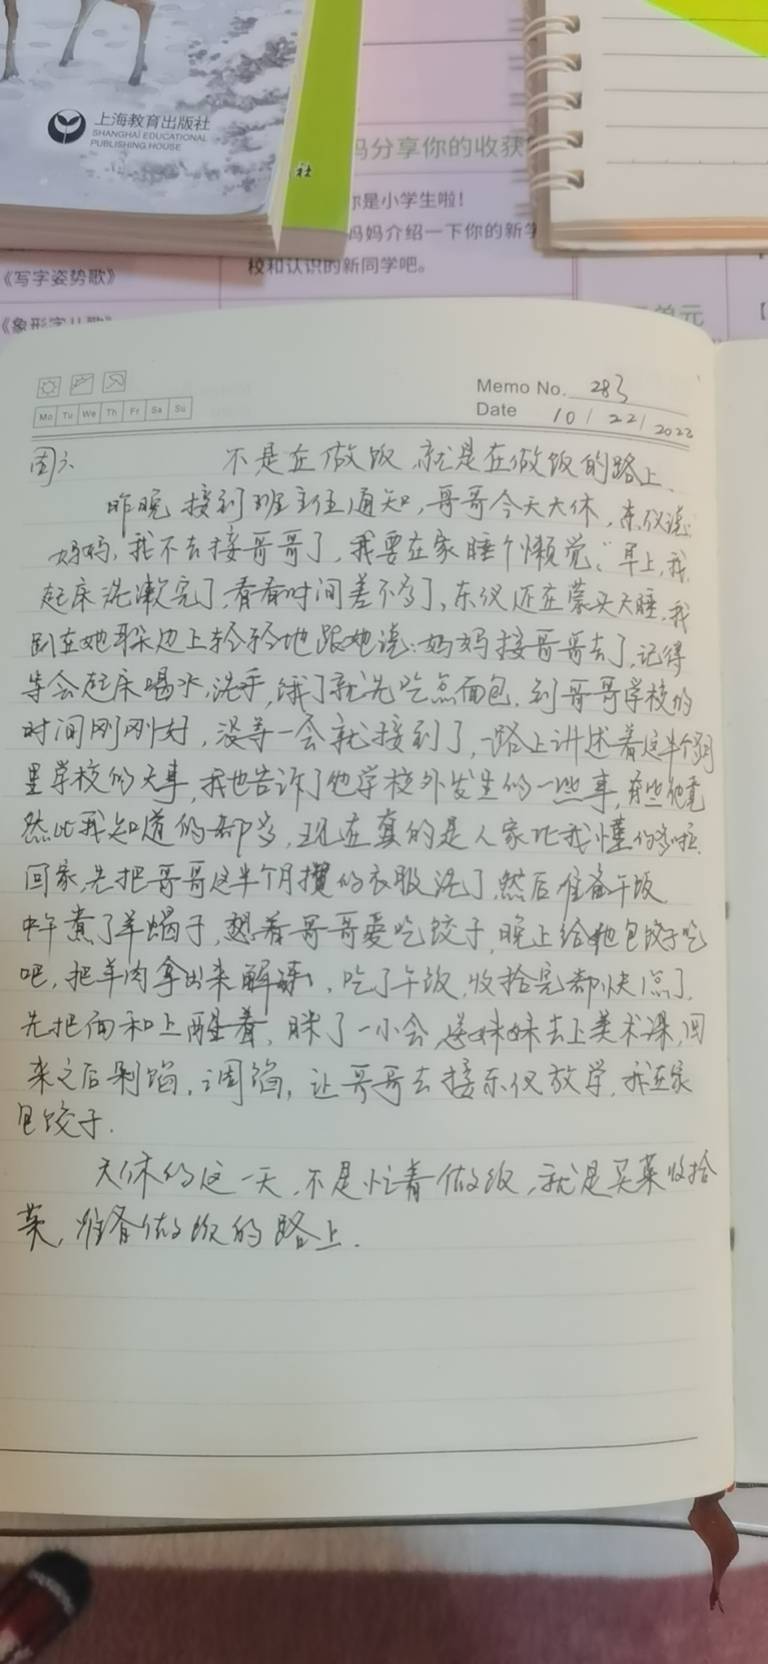 上海教育出版社
SHANGHAI EDUCATIONAL
PUBLISHING HOUSE
社
妈分享你的收获
你是小学生啦！
妈妈介绍一下你的新学
校和认识的新同学吧。
《写字姿势歌》
《象形字儿歌》
单元
Memo No. 283
Mo Tu We Th Fr Sa Su
Date 10/22/2022
周六 不是在做饭，就是在做饭的路上。
昨晚接到班主任通知，哥哥今天大休，东仪说：
妈妈，我不去接哥哥了，我要在家睡个懒觉。"早上，我
起床洗漱完了，看看时间差不多了，东仪还在蒙头大睡，我
趴在她耳朵边上轻轻地跟她说：妈妈接哥哥去了，记得
等会起床喝水，洗手，饿了就先吃点面包，到哥哥学校的
时间刚刚好，没等一会就接到了，一路上讲述着这半个月
里学校的大事，我也告诉了他学校外发生的一些事，有些他竟
然比我知道的都多，现在真的是人家比我懂的多啦。
回家，先把哥哥这半个月攒的衣服洗了，然后准备午饭。
中午煮了羊蝎子，想着哥哥爱吃饺子，晚上给他包饺子吃
吧，把羊肉拿出来解冻，吃了午饭，收拾完都快1点了，
先把面和上醒着，眯了一小会，送妹妹去上美术课，回
来之后剁馅，调馅，让哥哥去接东仪放学，我在家
包饺子。
大休的这一天，不是忙着做饭，就是买菜收拾
菜，准备做饭的路上。